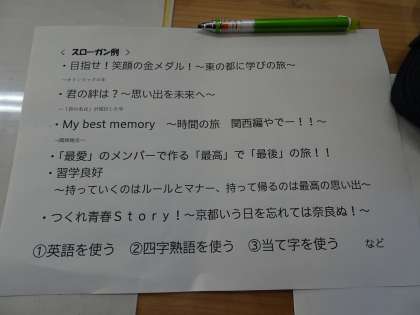 < スローガン例 >
・目指せ！笑顔の金メダル！～東の都に学びの旅～
・君の絆は？～思い出を未来へ～
・My best memory ～時間の旅 関西編やでー！！～
・「最愛」のメンバーで作る「最高」で「最後」の旅！！
・習学良好
～持っていくのはルールとマナー、持って帰るのは最高の思い出～
・つくれ青春Ｓｔｏｒｙ！～京都いう日を忘れては奈良ぬ！～
①英語を使う ②四字熟語を使う ③当て字を使う など